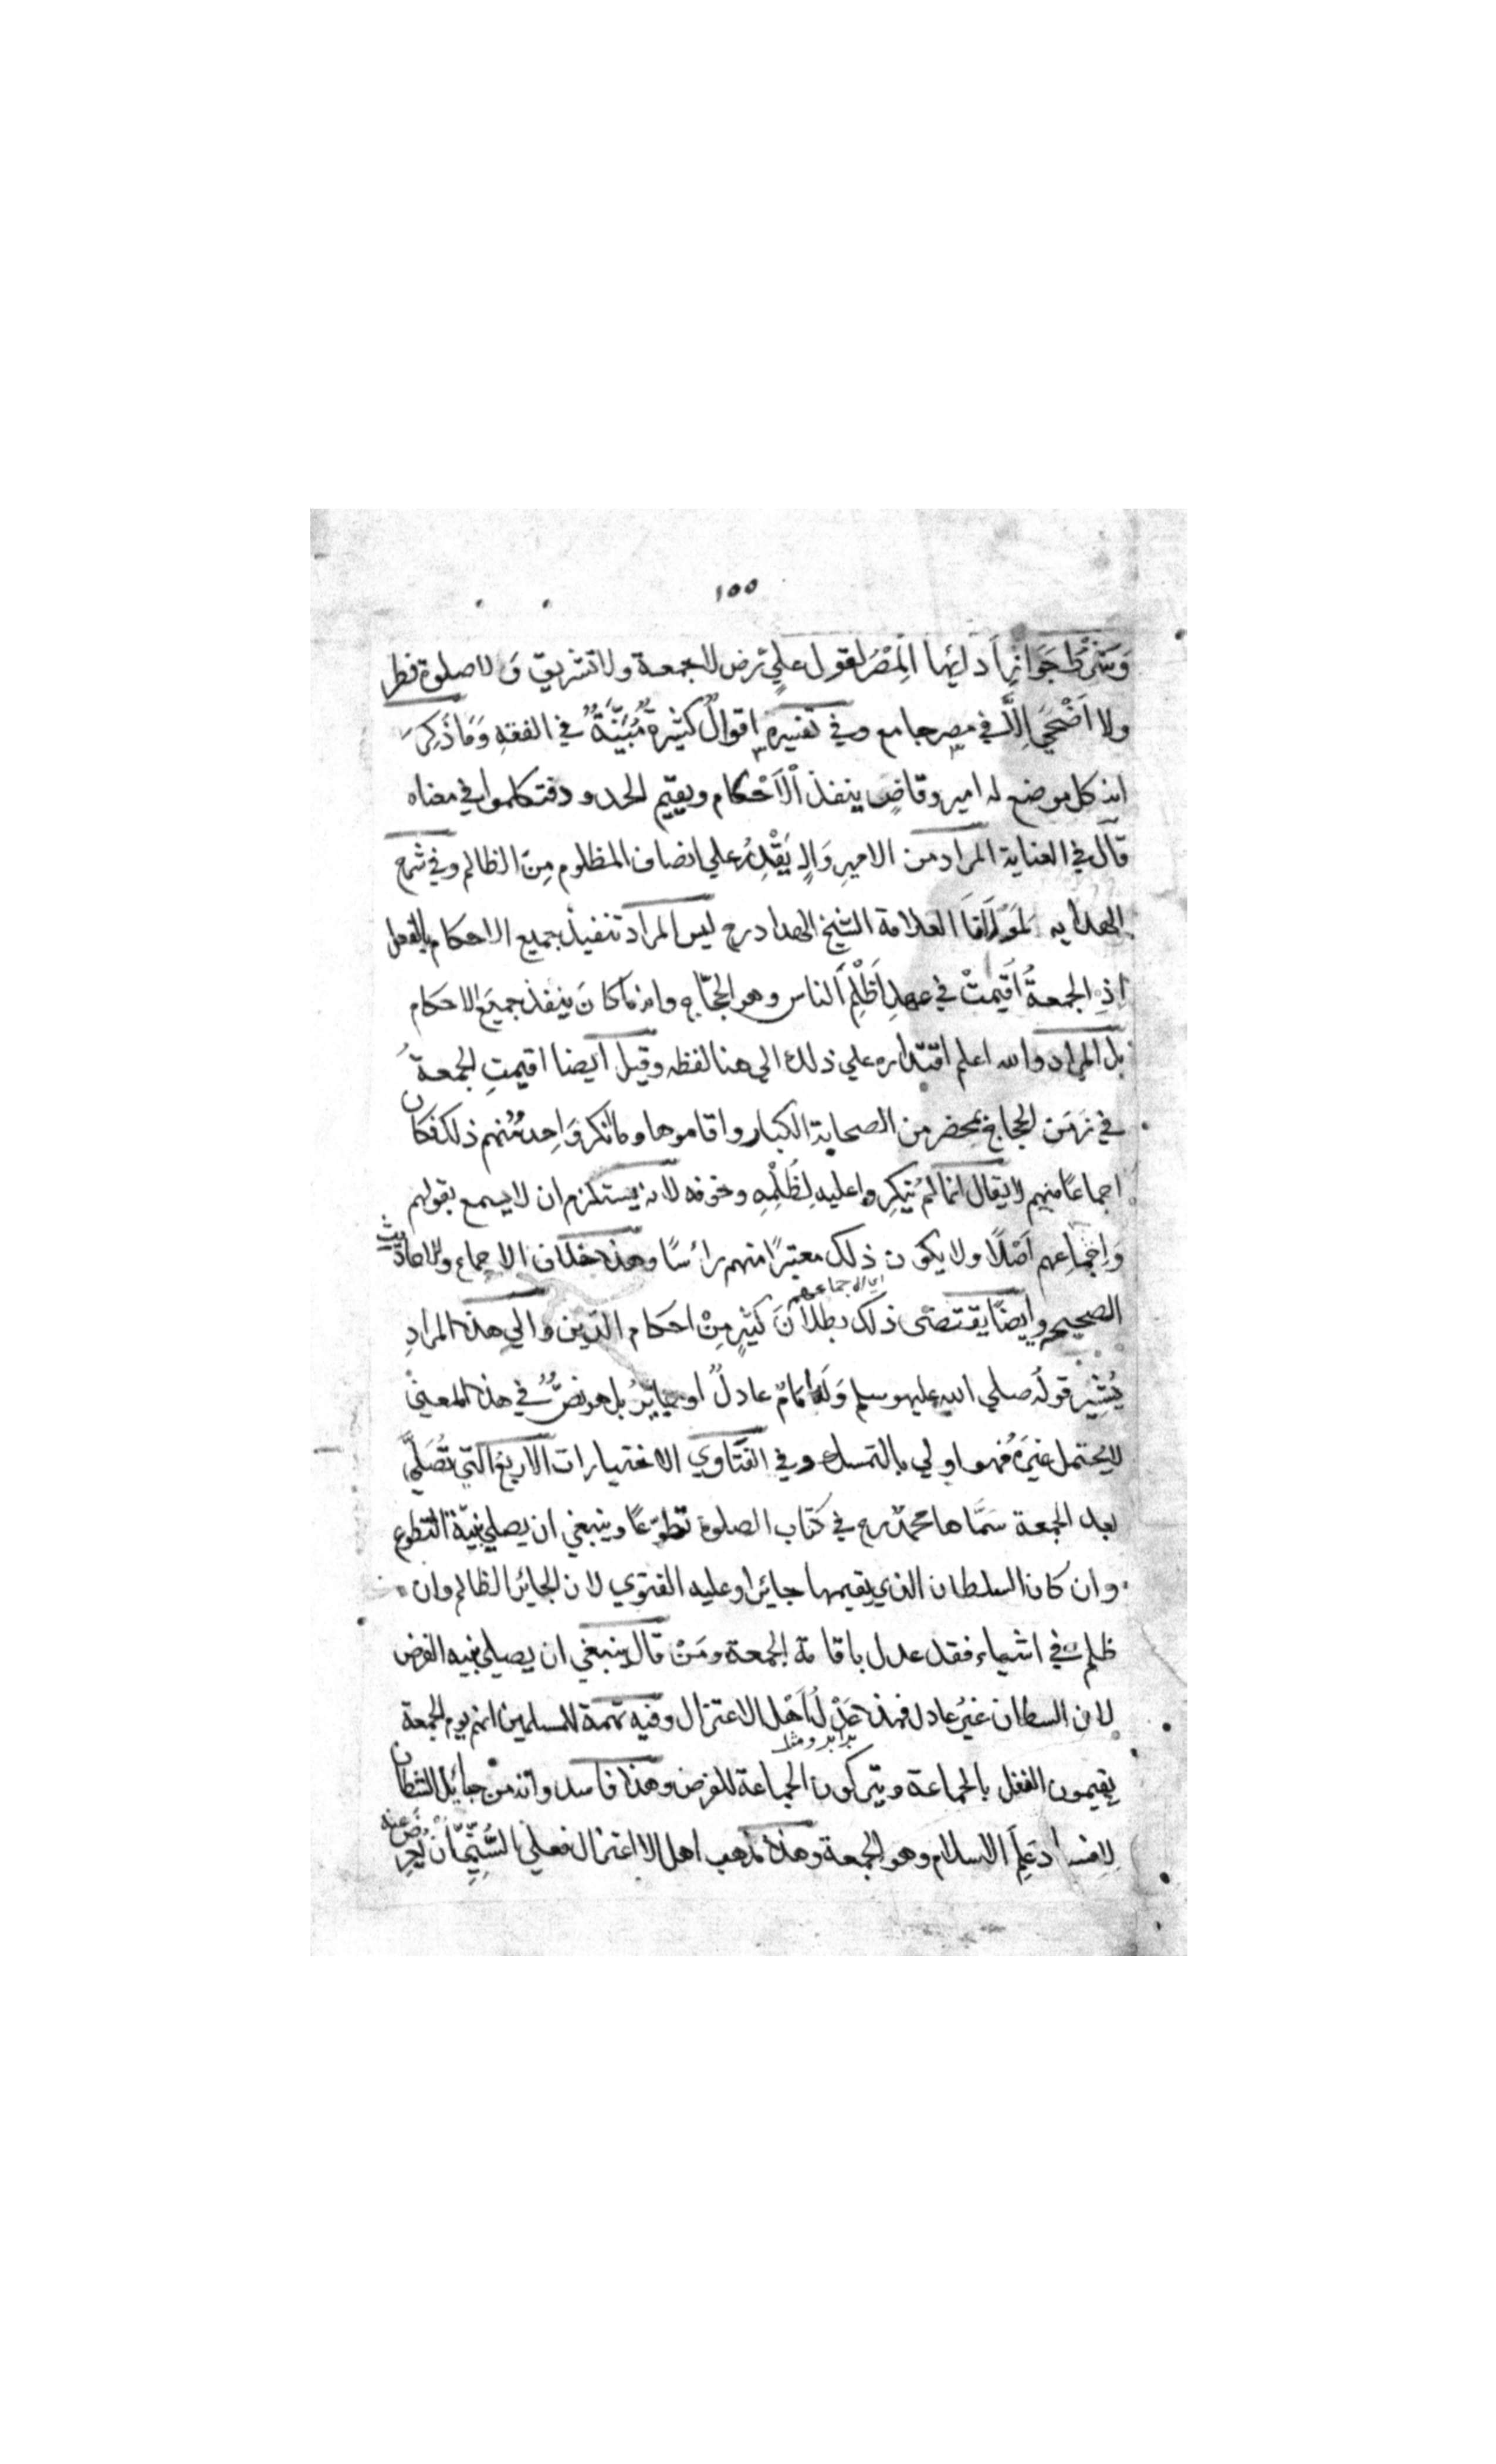 ١٥٥
وَشَرْطُ جَوَازِ اَدَائِها الْمِصْرُ لقول عليٍّ رض لا جمعة ولا تشريق وَلا صلوة فطر
ولا اَضْحَى اِلَّا في مصر جامع وفي تفسيره اقوالٌ كثيرةٌ مُبَيَّنَةٌ في الفقهِ وَمَا ذُكِرَ
انه كل موضع له امير وقاضٍ ينفذ اْلاَحْكام ويقيم الحدود فتكلموا في معناه
قال في العناية المراد من الاميرِ وَالٍ يَقْدِرُ علي انصاف المظلوم مِنَ الظالم وفي شرح
الهدايه لمَوْلَانَا العلامة الشيخ الهداد رح ليس المراد تنفيذ جميع الاحكام بالفعل
اِذِ الجمعةُ اُقيمتْ في عهدِ اَظْلَمِ الناس وهو الحجّاج وانه ما كانَ ينفذ جميعَ الاحكام
بل المراد والله اعلم اقتداره علي ذلك الي هنا لفظه وقيل ايضا اقيمتِ الجمعةُ
في زمَنِ الحجاج بمحضر من الصحابة الكبار واقاموها وما انكر وَاحِدٌ مِّنهم ذلك فكان
اجماعًا منهم لا يقال انما لمْ يُنكِروا عليه لِظُلْمِهِ وخوفه لانه يستلزم ان لا يسمع بقولهم
وَاِجْمَاعِهم اَصْلًا ولا يكون ذلك معتبرًا منهم رائسًا وهذا خلاف الاجماع والاحاديث
اي الاجماعهم
الصحيح وايضًا يقتضى ذلك بطلانَ كثيرٍ مِنْ احكام الدّين والي هذا المرادِ
يُشِيْرُ قولُه صلي الله عليه وسلم وَلَهُ اِمَامٌ عادلٌ او جايرٌ بل هو نصٌّ في هذا المعني
لا يحتمل غيرَهُ فهو اولي بالتمسك وفي الفتاوي الاختيارات الاربعُ الّتي تُصَلَّى
بعد الجمعة سَمَّاها محمدٌ رح في كتاب الصلوة تطوّعًا وينبغي ان يصلي بنيّة التطوع
وان كان السلطان الذي يقيمها جائرا وعليه الفتوي لان الجائر الظالم وان
ظلم في اشياء فقد عدل باقامة الجمعة ومَنْ قال ينبغي ان يصلي بنيه الفرض
لان السطان غيرُ عادل فهذا عَدْلُ اَهْلِ الاعتزال وفيه تهمة للمسلمين انهم يوم الجمعة
يقيمون النفل بالجماعة ويتركون الجماعة للفرض وهذا فاسد وانه من حبائل الشيطان
لافساد عَلَمِ الاسلام وهو الجمعة وهذا مذهب اهل الااعتزال فعلي السُّنِّيِّ اَنْ يُعْرِضَ عنه